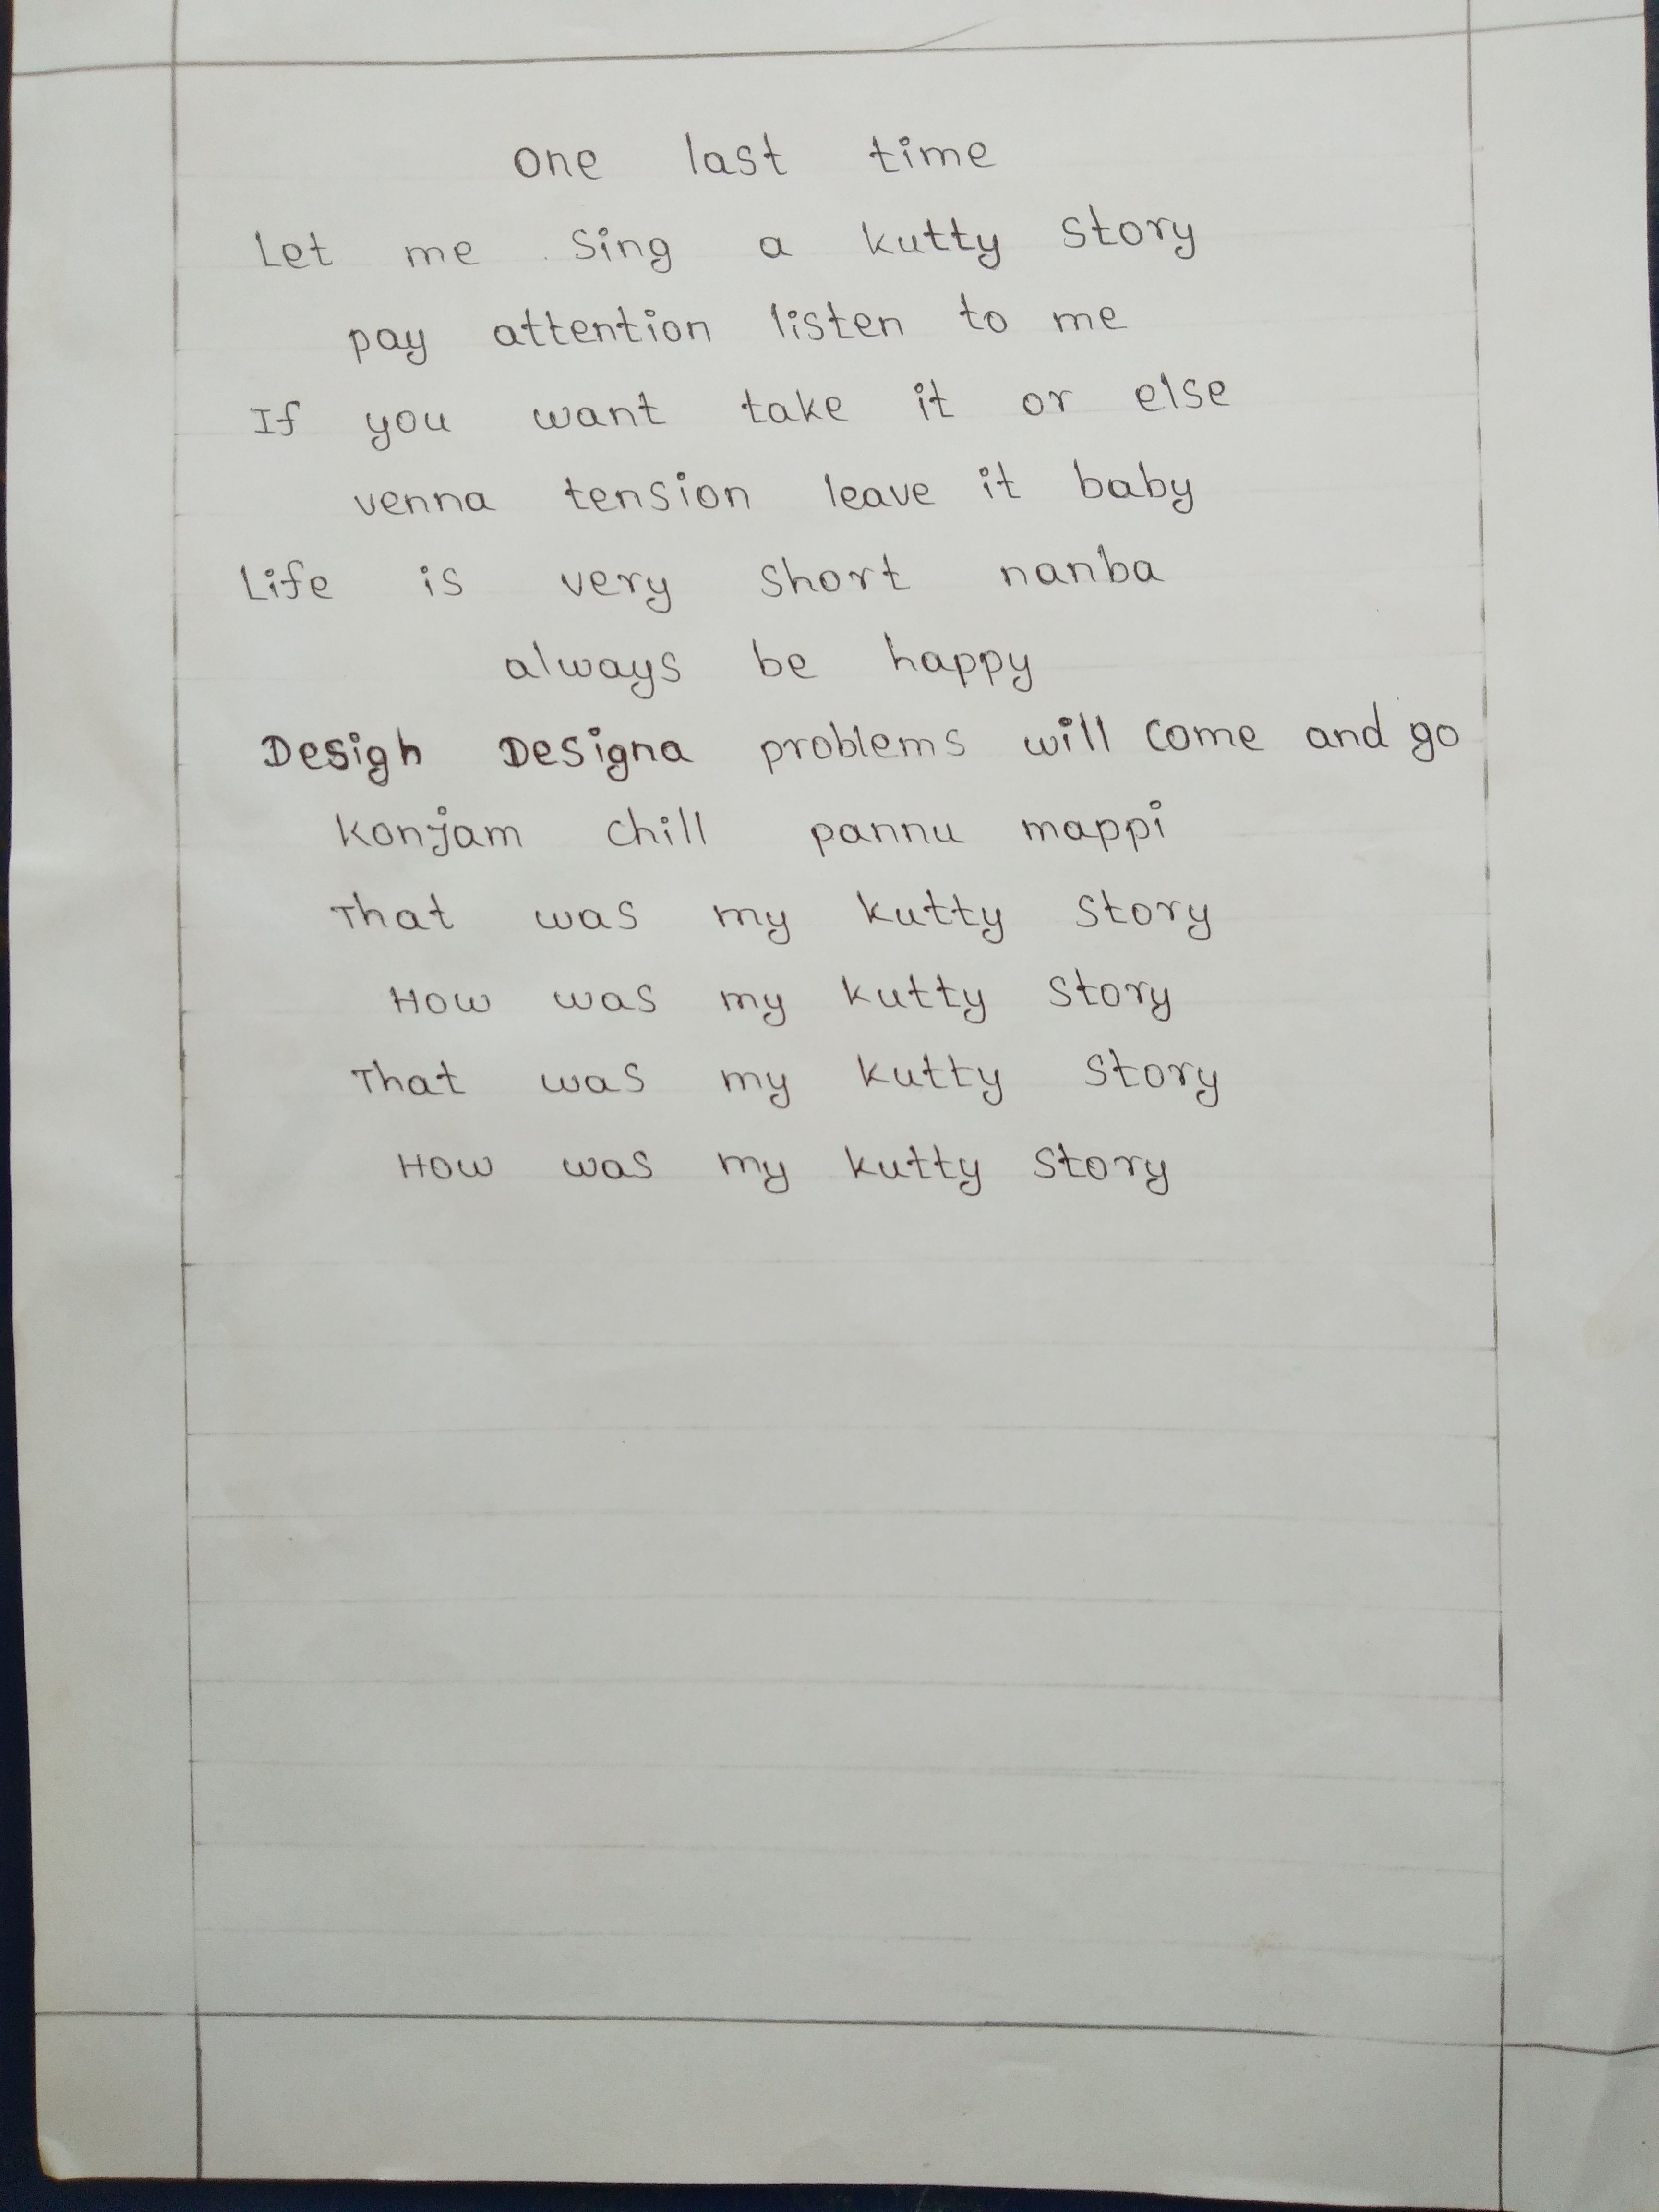 one last time
Let me sing a kutty story
pay attention listen to me
If you want take it or else
venna tension leave it baby
Life is very short nanba
always be happy
Desigh Designa problems will come and go
Konjam chill pannu mappi
That was my kutty story
How was my kutty story
That was my kutty story
How was my kutty story